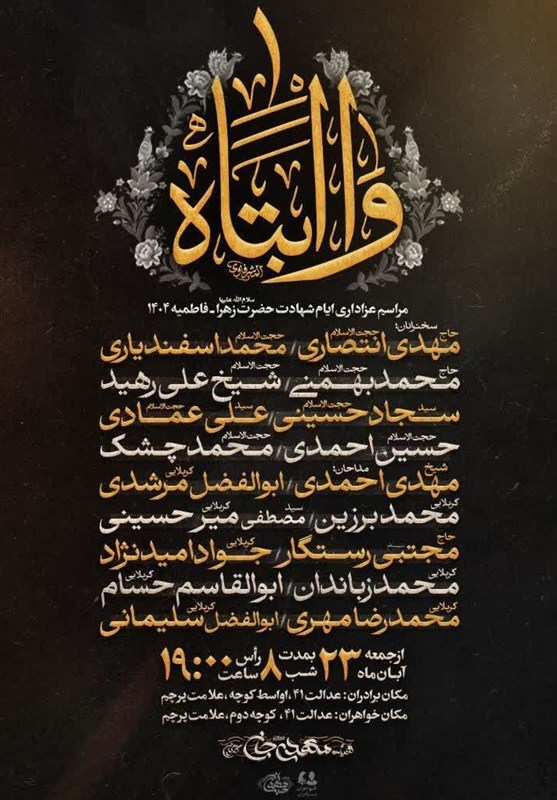 وا ابتاه
سلام الله علیها
مراسم عزاداری ایام شهادت حضرت زهرا - فاطمیه ۱۴۰۴
سخنرانان:
حاج مهدی انتصاری / حجت‌الاسلام محمد اسفندیاری
حاج محمد بهمنی / حجت‌الاسلام شیخ علی رهید
سید سجاد حسینی / حجت‌الاسلام سید علی عمادی
حجت‌الاسلام حسین احمدی / حجت‌الاسلام محمد چشک
مداحان:
شیخ مهدی احمدی / کربلایی ابوالفضل مرشدی
کربلایی محمد برزین / کربلایی سید مصطفی میرحسینی
حاج مجتبی رستگار / کربلایی جواد امیدنژاد
کربلایی محمد زباندان / کربلایی ابوالقاسم حسام
کربلایی محمدرضا مهری / کربلایی ابوالفضل سلیمانی
از جمعه ۲۳ آبان ماه بمدت ۸ شب رأس ساعت ۱۹:۰۰
مکان برادران: عدالت ۴۱، اواسط کوچه، علامت پرچم
مکان خواهران: عدالت ۴۱، کوچه دوم، علامت پرچم